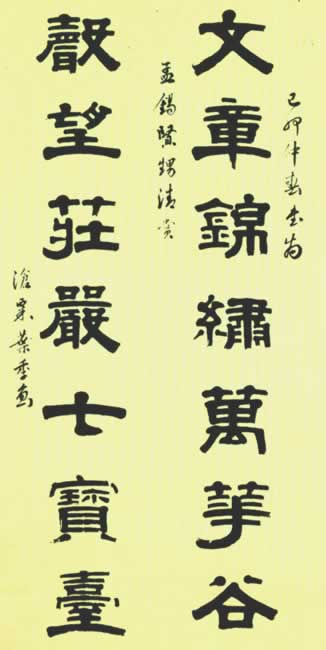 己卯仲春書為
文章錦繡萬華谷
孟錫賢甥清賞
聲望莊嚴七寶臺
滄粟葉季